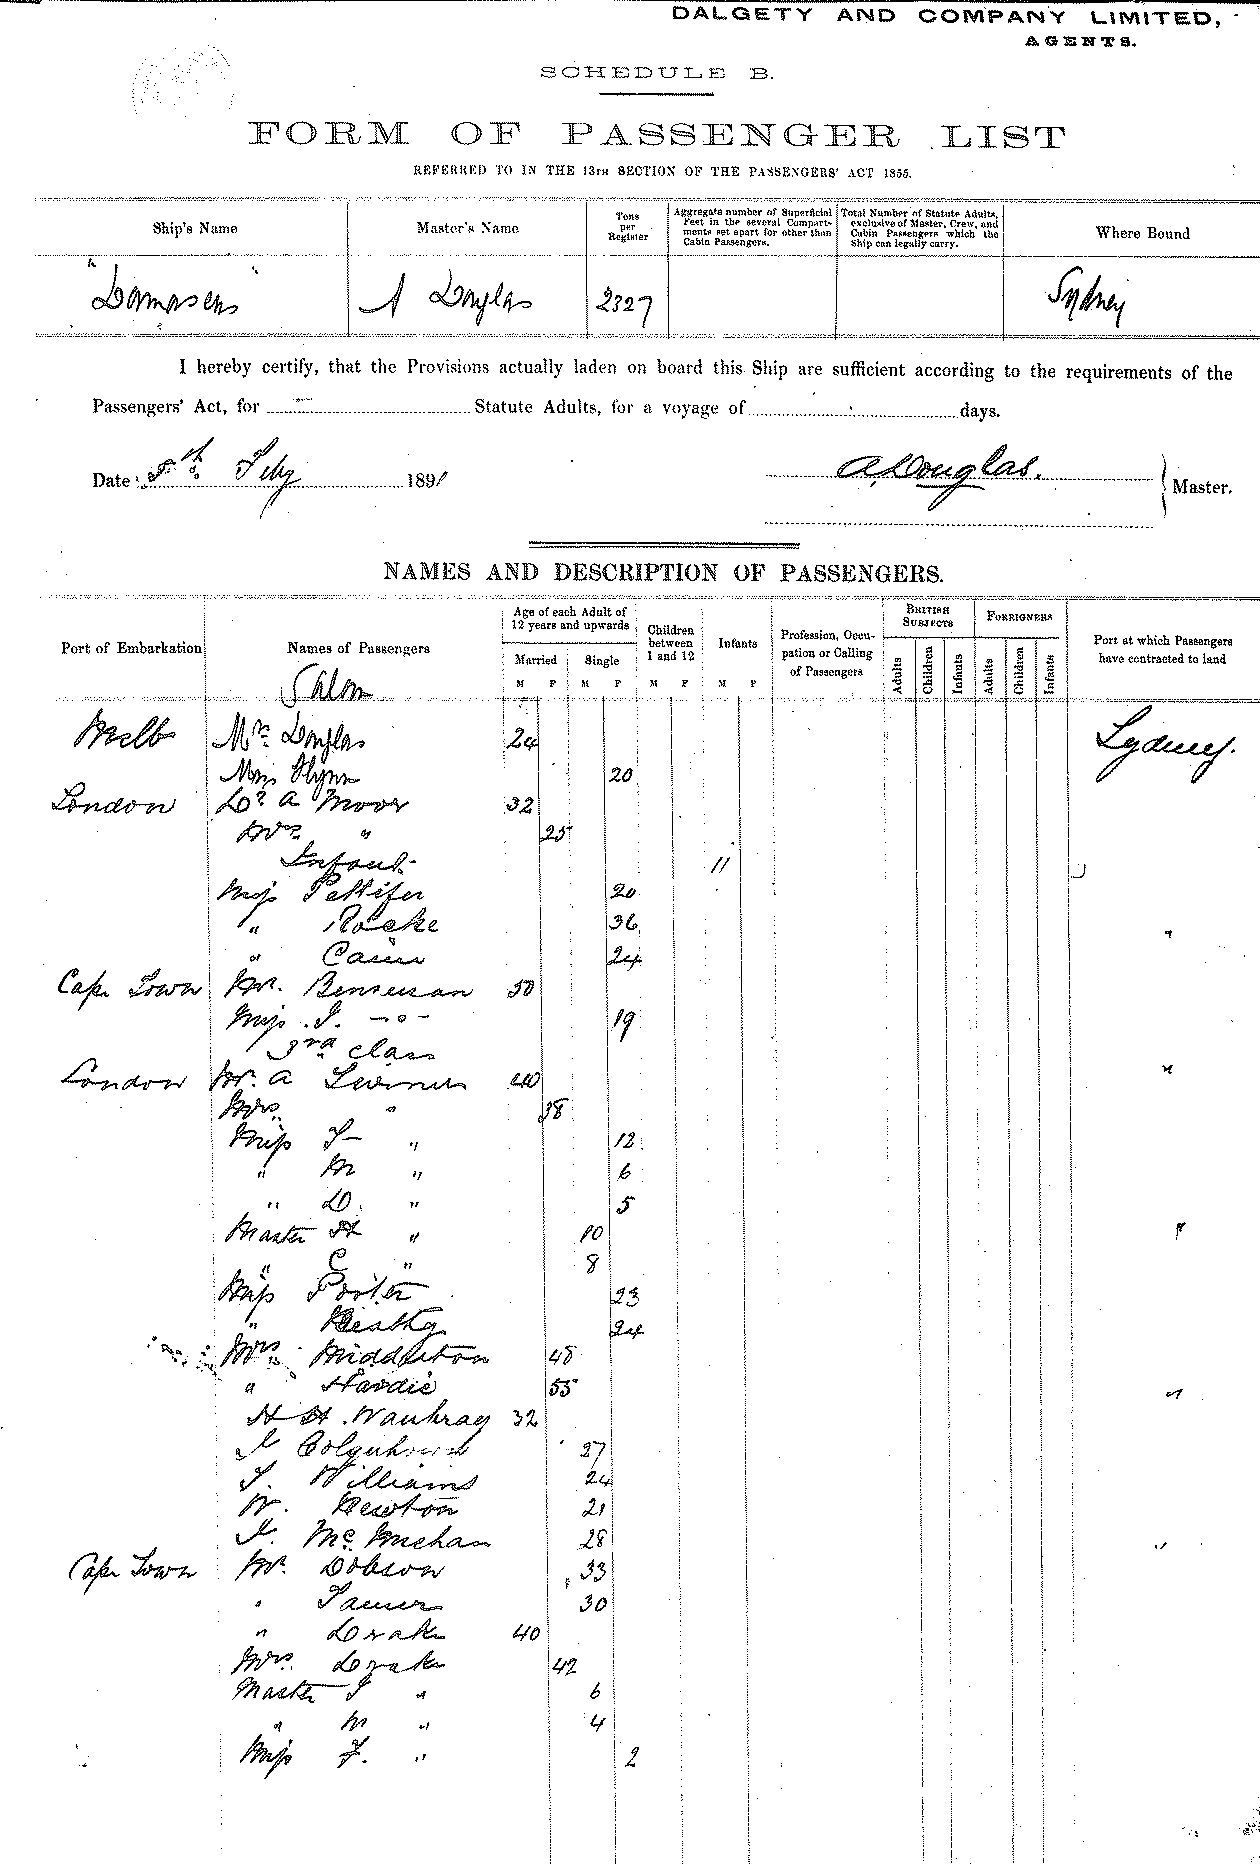 DALGETY AND COMPANY LIMITED,
AGENTS.
SCHEDULE B.
FORM OF PASSENGER LIST
REFERRED TO IN THE 13TH SECTION OF THE PASSENGERS' ACT 1855.
Ship's Name Master's Name Tons per Register Aggregate number of Superficial Feet in the several Compartments set apart for other than Cabin Passengers. Total Number of Statute Adults, exclusive of Master, Crew, and Cabin Passengers which the Ship can legally carry. Where Bound
"Damascus" A Douglas 2327 Sydney
I hereby certify, that the Provisions actually laden on board this Ship are sufficient according to the requirements of the
Passengers' Act, for Statute Adults, for a voyage of days.
Date 5th Feby 1891 A. Douglas. Master.
NAMES AND DESCRIPTION OF PASSENGERS.
Port of Embarkation Names of Passengers Age of each Adult of 12 years and upwards Children between 1 and 12 Infants Profession, Occupation or Calling of Passengers BRITISH SUBJECTS FOREIGNERS Port at which Passengers have contracted to land
Married Single Adults Children Infants Adults Children Infants
M F M F M F M F
Saloon
Melb Mr. Douglas 24 Sydney.
Miss Flynn 20
London Dr. A Moor 32
Mrs. " 25
Infant 11
Miss Pettifer 20
" Rocke 36
" 24
Cape Town Mr. 50
Miss J. -"- 19
3rd class
London Mr. A 40
Mrs. " 38
Miss " 12
" M " 6
" D. " 5
Master H " 10
" C " 8
Miss Porter 23
" 24
Mrs. Middleton 48
" Hardie 55
H H 32
Colquhoun 27
Williams 24
W. Newton 21
28
Cape Town Mr. Dobson 33
" 30
" Drake 40
Mrs. Drake 42
Master J " 6
" M " 4
Miss F. " 2